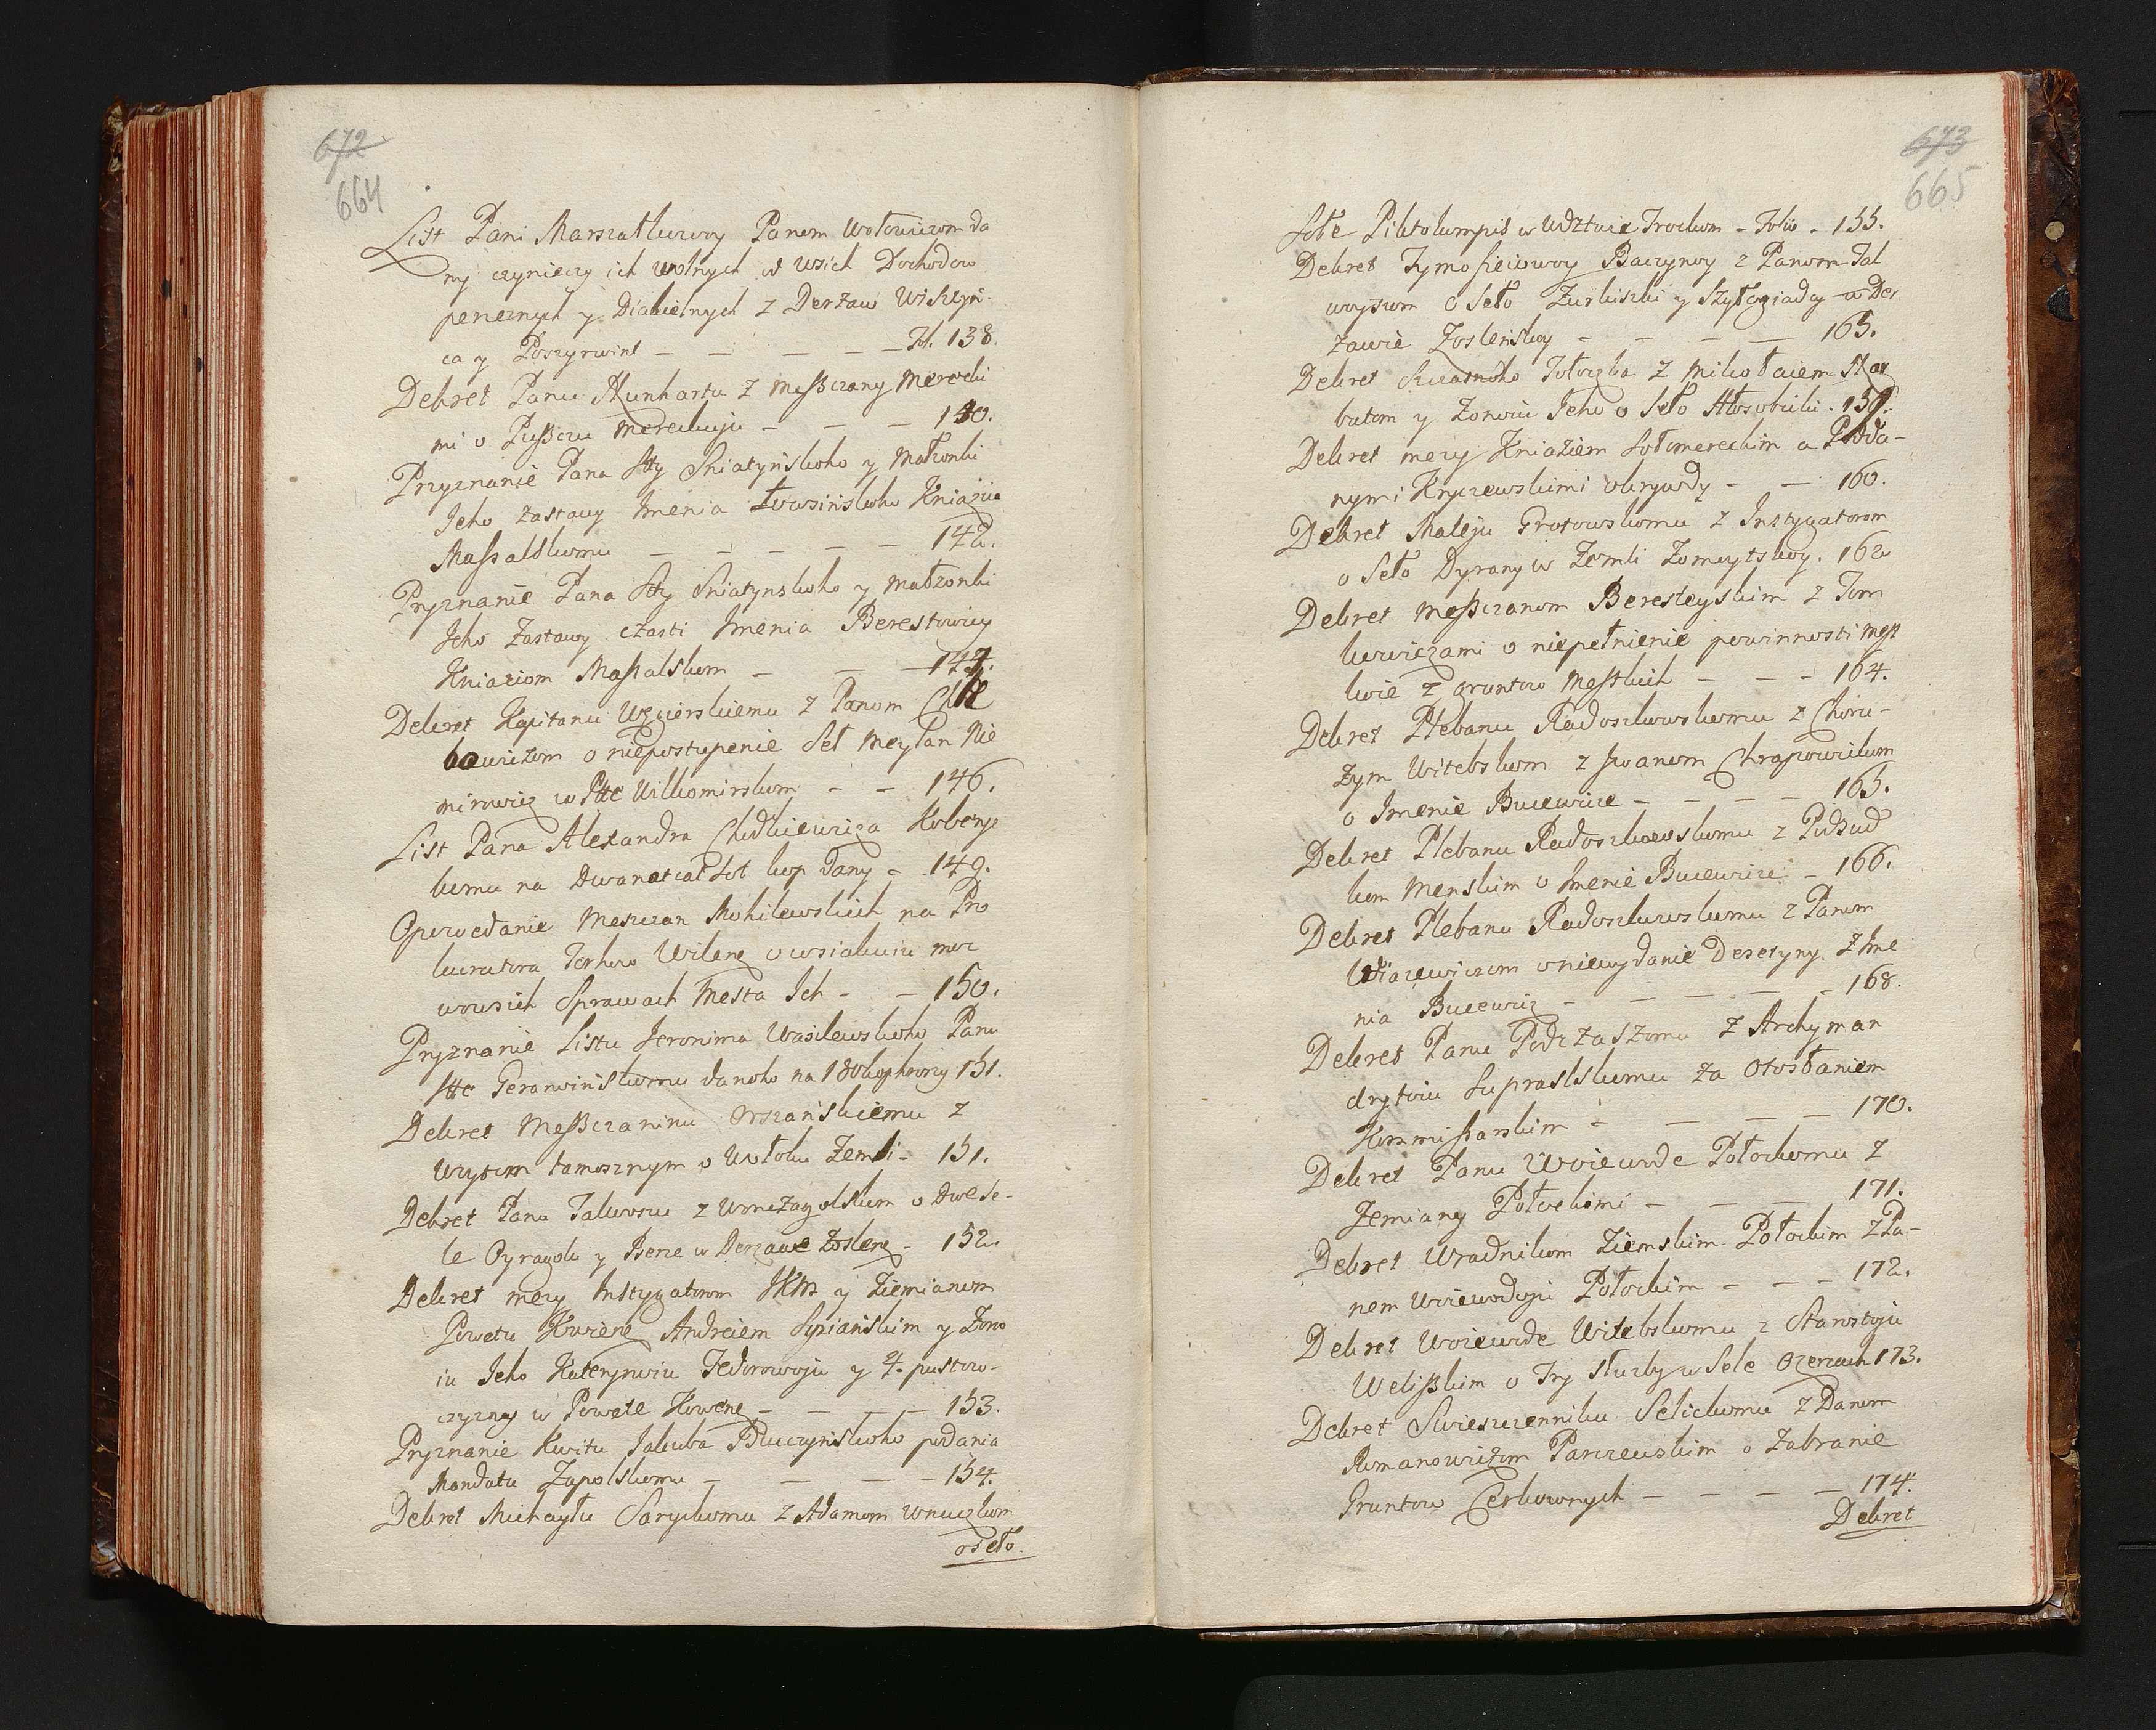 672
664
List Pani Marszałkowoy Panom Wołowiczom da
ny czynieczy ich wolnych od wsich Dochodow
peneznych y Diakielnych z Derżaw Wiszyń-
ca y Poszyrwint - - - - - Fol. 138.
Dekret Panu Kunhartu z Meszczany Merecki
mi o Puszczu Mereckuju - - - 140.
Pryznanie Pana Stty Sniatyńskoho y Małżonki
Jeho zastawy Imenia Łowsińskoho Kniaziu
Massalskomu - - - - - 142.
Pryznanie Pana Stty Sniatynskoho y Małżonki
Jeho Zastawy czasti Imenia Berestowicy
Kniaziom Massalskom - - - 144.
Dekret Kapitanu Węgierskiemu z Panom Chle
bowiczom o niepostupenie Seł Meylan Nie
mirowicz w Ptte Wilkomirskom - - 146.
List Pana Alexandra Chodkiewicza Kobeny
komu na Dwanatcat Sot kop Dany - 149.
Opowedanie Meszczan Mohilewskich na Pro
kuratora Torhow Wilene o wsiakuiu moc
wowsich Sprawach Mesta Ich - - 150.
Pryznanie Listu Jeronima Wasilewskoho Panu
Stte Geranoińskomu danoho na 180 kop hroszy 151.
Dekret Meszczaninu Orszańskiemu z
Woytom tamosznym o Wołoku Zemli - 151.
Dekret Panu Talwoszu z Wornezagolskim o Dwe Se-
le Oyragolu y Isene w Derżawe Zoslene - 152.
Dekret mezy Instygatorom JKM y Ziemianom
Powetu Kowene Andreiem Syrianskim y Żono
iu Jeho Katerynoiu Fedorowoju y 4. pustow-
czyzny w Powete Kowene - - - - 153.
Pryznanie Kwitu Jakuba Buczyńskoho podania
Mandatu Zapolskomu - - - - 154.
Dekret Michayłu Saryckomu z Adamom Wnuczkom
o Seło.
673
665
Sołe Piktokumpis w Wdztwie Trockom - Folio - 155.
Dekret Tymofieiowoy Baczynoy z Panom Tal
woyszom o Seło Zurkiszki y Szyłogiady w Der
żawie Zosleńskoy - - - - 165.
Dekret Sczasnoho Tołoczka z Mikołaiem Skar
butom y Żonoiu Jeho o Seło Hłosobiski. 159.
Dekret mezy Kniaziem Sołomereckim a Podda-
nymi Kryczewskimi o krywdy - - 160.
Dekret Mateju Grotowskomu z Instygatorom
o Seło Dyrany w Zemli Żomoytskoy. 162
Dekret Meszczanom Beresteyskim z Tom
kowiczami o niepełnienie powinnosti Mest
koie z gruntow Mestkich - - - 164.
Dekret Plebanu Radoszkowskomu z Choru-
żym Witebskom z Iwanom Chrapowickom
o Imenie Bucewicze - - - - 165.
Dekret Plebanu Radoszkowskomu z Podsud
kom Menskim o Imenie Bucewiczi - 166.
Dekret Plebanu Radoszkowskomu z Panom
Wiazewiczom o niewydanie Desetyny z Ime
nia Bucewicz - - - - - 168.
Dekret Panu Podczaszomu z Archyman
drytoiu Supraslskomu za Otosłaniem
Kommissarskim - - - - 170.
Dekret Panu Woiewode Połockomu z
Zemiany Połockimi - - - 171.
Dekret Wradnikom Ziemskim Połockim z Pa-
nem Woiewodoju Połockim - - - 172.
Dekret Woiewode Witebskomu z Starostoju
Weliszkim o Try służby w Sele Ozerzach 173.
Dekret Swieszczenniku Selickomu z Panom
Romanowiczom Parczewskim o Zabranie
Gruntow Cerkownych - - - - 174.
Dekret